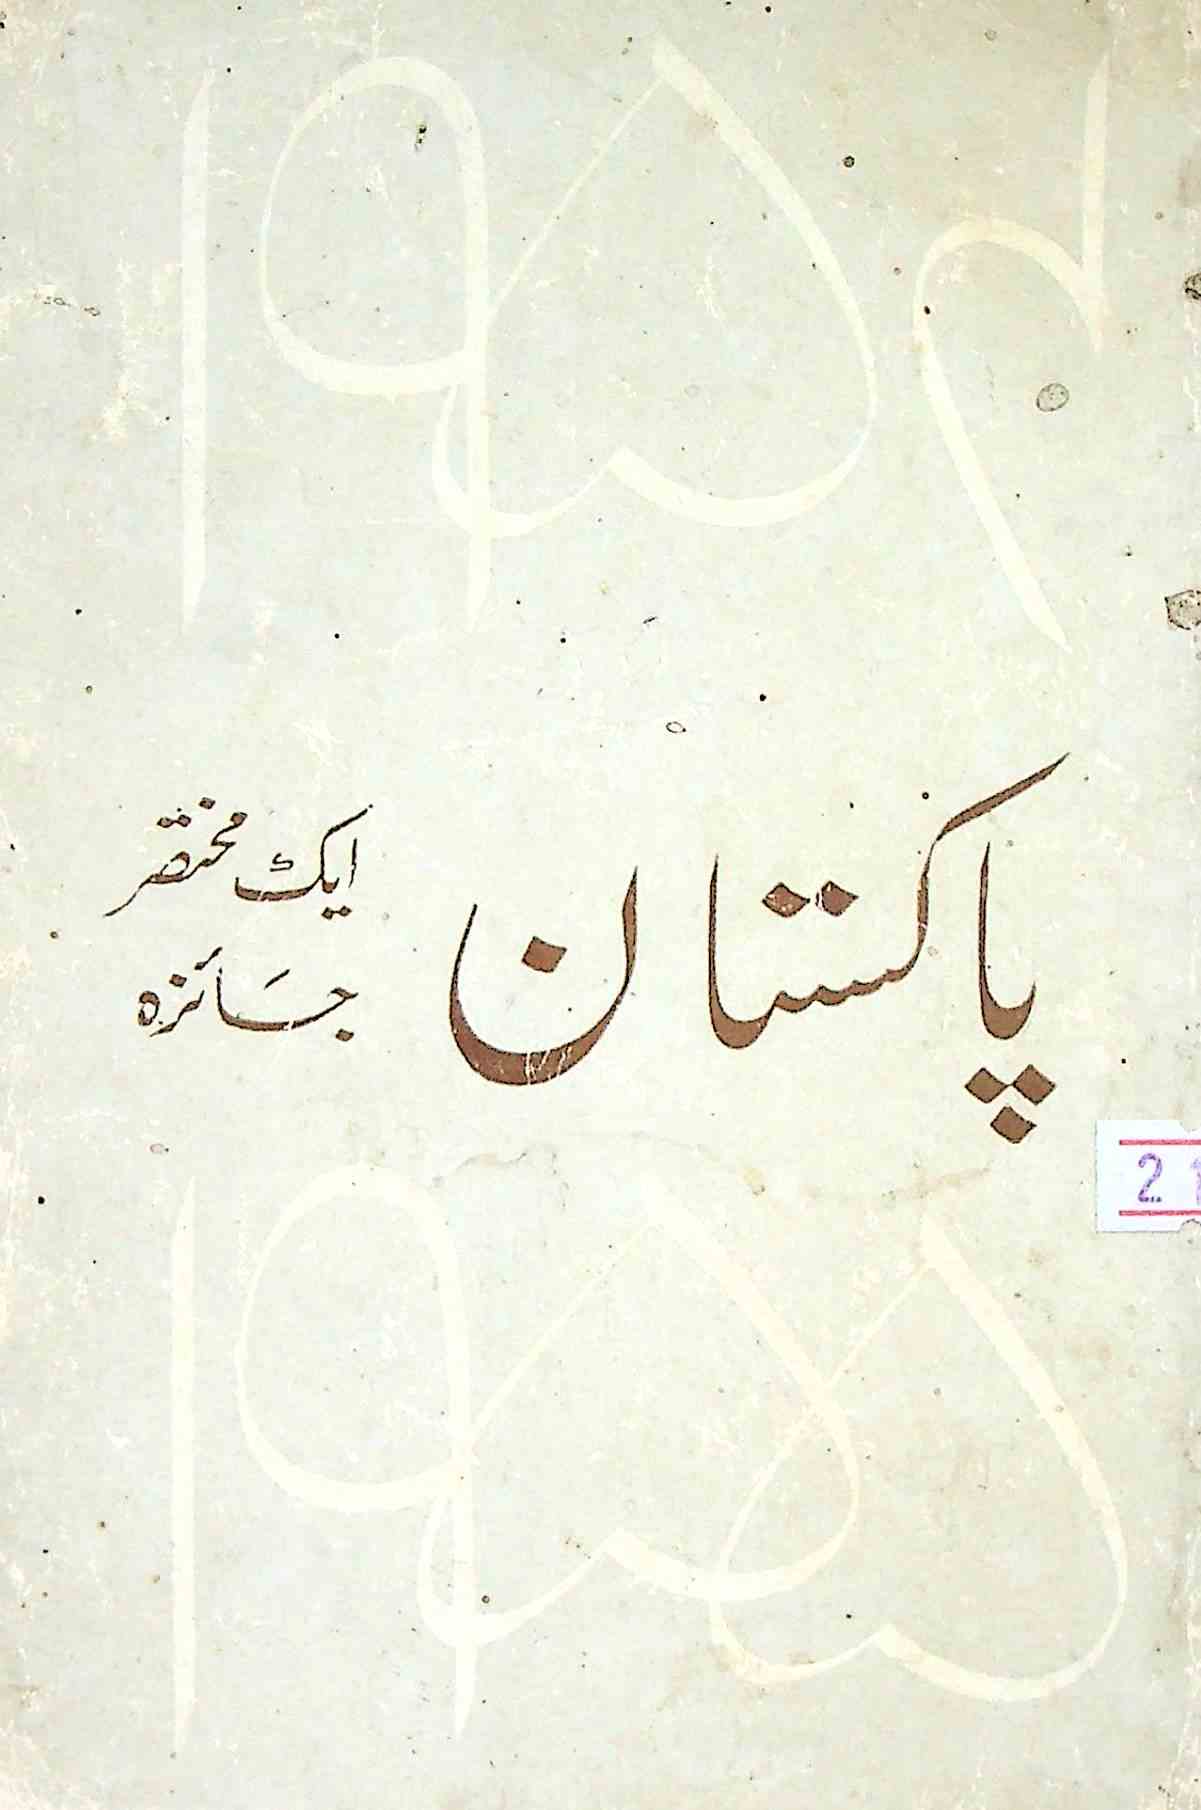 ۱۹۵۴
پاکستان
ایک مختصر
جائزہ
۱۹۵۵
2